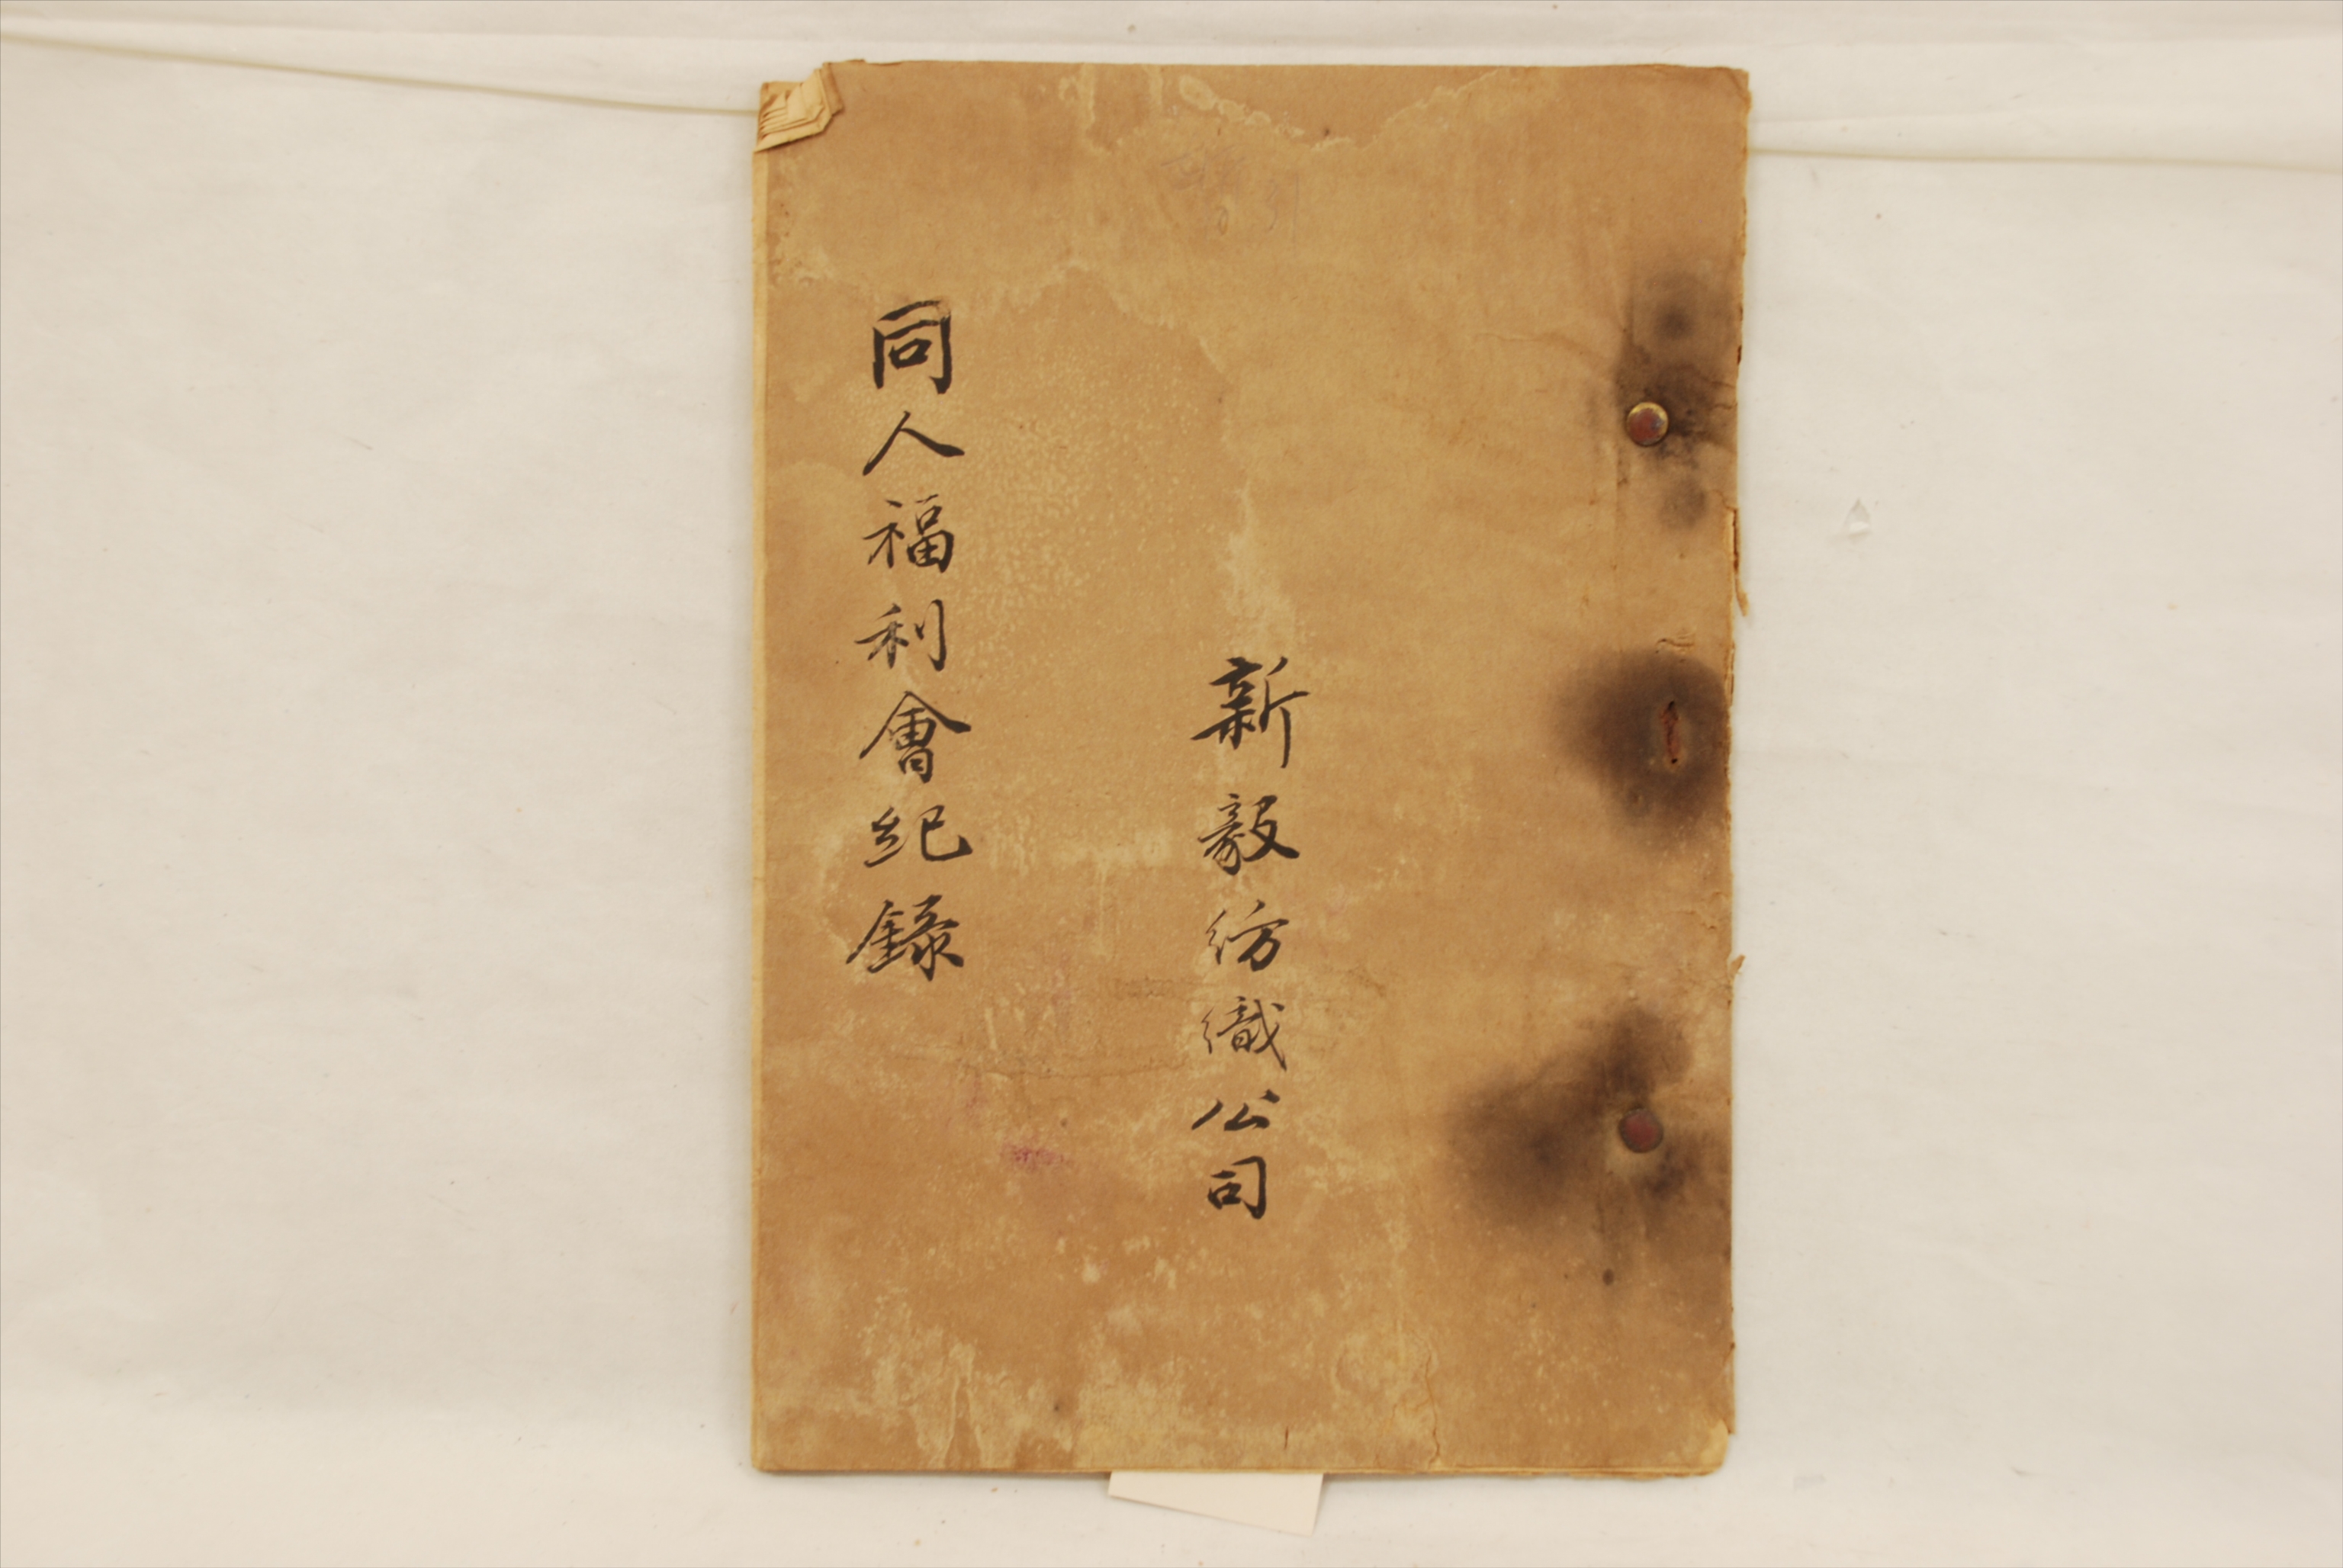 新毅紡織公司
同人福利會紀錄